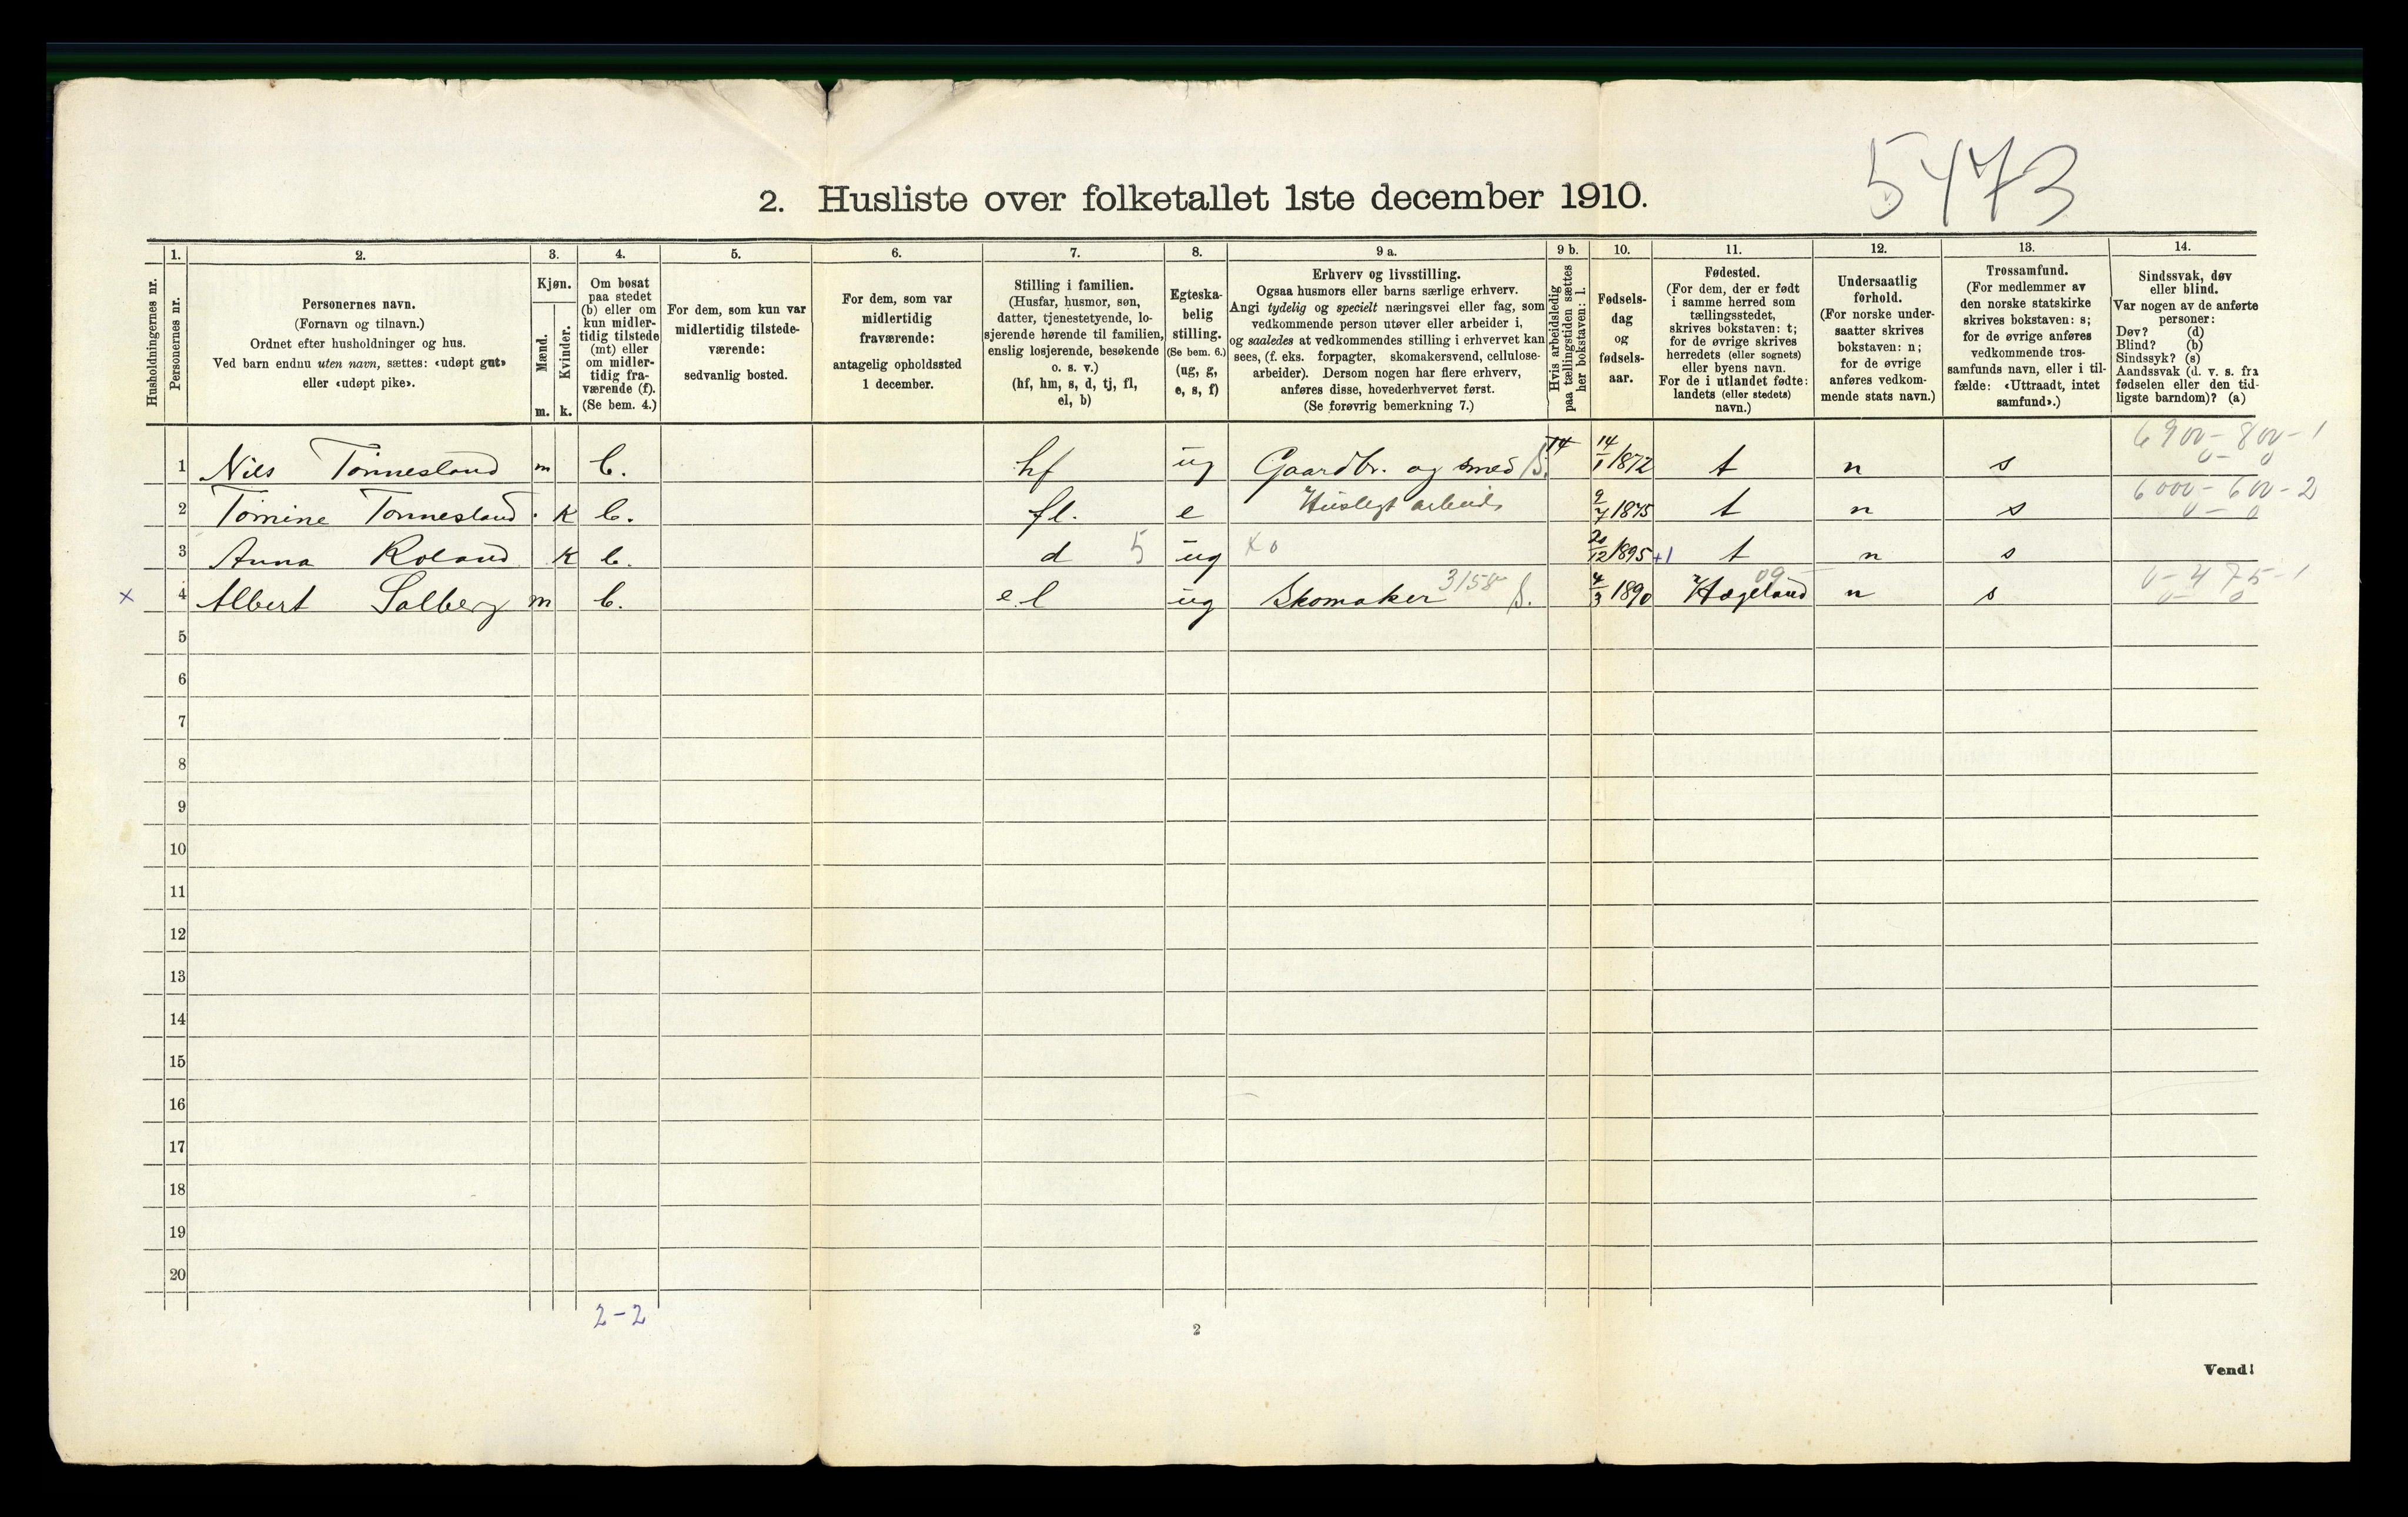 5473
2. Husliste over folketallet 1ste december 1910.
Husholdningernes nr.
1.
Personernes nr.
2.
Personernes navn.
(Fornavn og tilnavn.)
Ordnet efter husholdninger og hus.
Ved barn endnu uten navn, sættes: «udøpt gut»
eller «udøpt pike».
3.
Kjøn.
Mænd.
m.
Kvinder.
k.
4.
Om bosat
paa stedet
(b) eller om
kun midler-
tidig tilstede
(mt) eller
om midler-
tidig fra-
værende (f).
(Se bem. 4.)
5.
For dem, som kun var
midlertidig tilstede-
værende:
sedvanlig bosted.
6.
For dem, som var
midlertidig
fraværende:
antagelig opholdssted
1 december.
7.
Stilling i familien.
(Husfar, husmor, søn,
datter, tjenestetyende, lo-
sjerende hørende til familien,
enslig losjerende, besøkende
o. s. v.)
(hf, hm, s, d, tj, fl,
el, b)
8.
Egteska-
belig
stilling.
(Se bem. 6.)
(ug, g,
e, s, f)
9 a.
Erhverv og livsstilling.
Ogsaa husmors eller barns særlige erhverv.
Angi tydelig og specielt næringsvei eller fag, som
vedkommende person utøver eller arbeider i,
og saaledes at vedkommendes stilling i erhvervet kan
sees, (f. eks. forpagter, skomakersvend, cellulose-
arbeider). Dersom nogen har flere erhverv,
anføres disse, hovederhvervet først.
(Se forøvrig bemerkning 7.)
9 b.
Hvis arbeidsledig
paa tællingstiden sættes
her bokstaven: l.
10.
Fødsels-
dag
og
fødsels-
aar.
11.
Fødested.
(For dem, der er født
i samme herred som
tællingsstedet,
skrives bokstaven: t;
for de øvrige skrives
herredets (eller sognets)
eller byens navn.
For de i utlandet fødte:
landets (eller stedets)
navn.)
12.
Undersaatlig
forhold.
(For norske under-
saatter skrives
bokstaven: n;
for de øvrige
anføres vedkom-
mende stats navn.)
13.
Trossamfund.
(For medlemmer av
den norske statskirke
skrives bokstaven: s;
for de øvrige anføres
vedkommende tros-
samfunds navn, eller i til-
fælde: «Uttraadt, intet
samfund».)
14.
Sindssvak, døv
eller blind.
Var nogen av de anførte
personer:
Døv? (d)
Blind? (b)
Sindssyk? (s)
Aandssvak (d. v. s. fra
fødselen eller den tid-
ligste barndom)? (a)
1 Nils Tönnesland m b. hf ug Gaardbr. og smed S. 14 14/1 1872 t n s 6900-800-1
0-0
2 Tomine Tonnesland. k b. fl. e Husligt arbeide 9/7 1875 t n s 6000-600-2
0-0
3 Anna Roland k b. d 5 ug x0 20/12 1895 +1 t n s
x 4 Albert Solberg m b. el ug Skomaker 3158 S. 4/3 1890 Hægeland 09 n s 0-475-1
0-0
5
6
7
8
9
10
11
12
13
14
15
16
17
18
19
20
2-2
2
Vend!